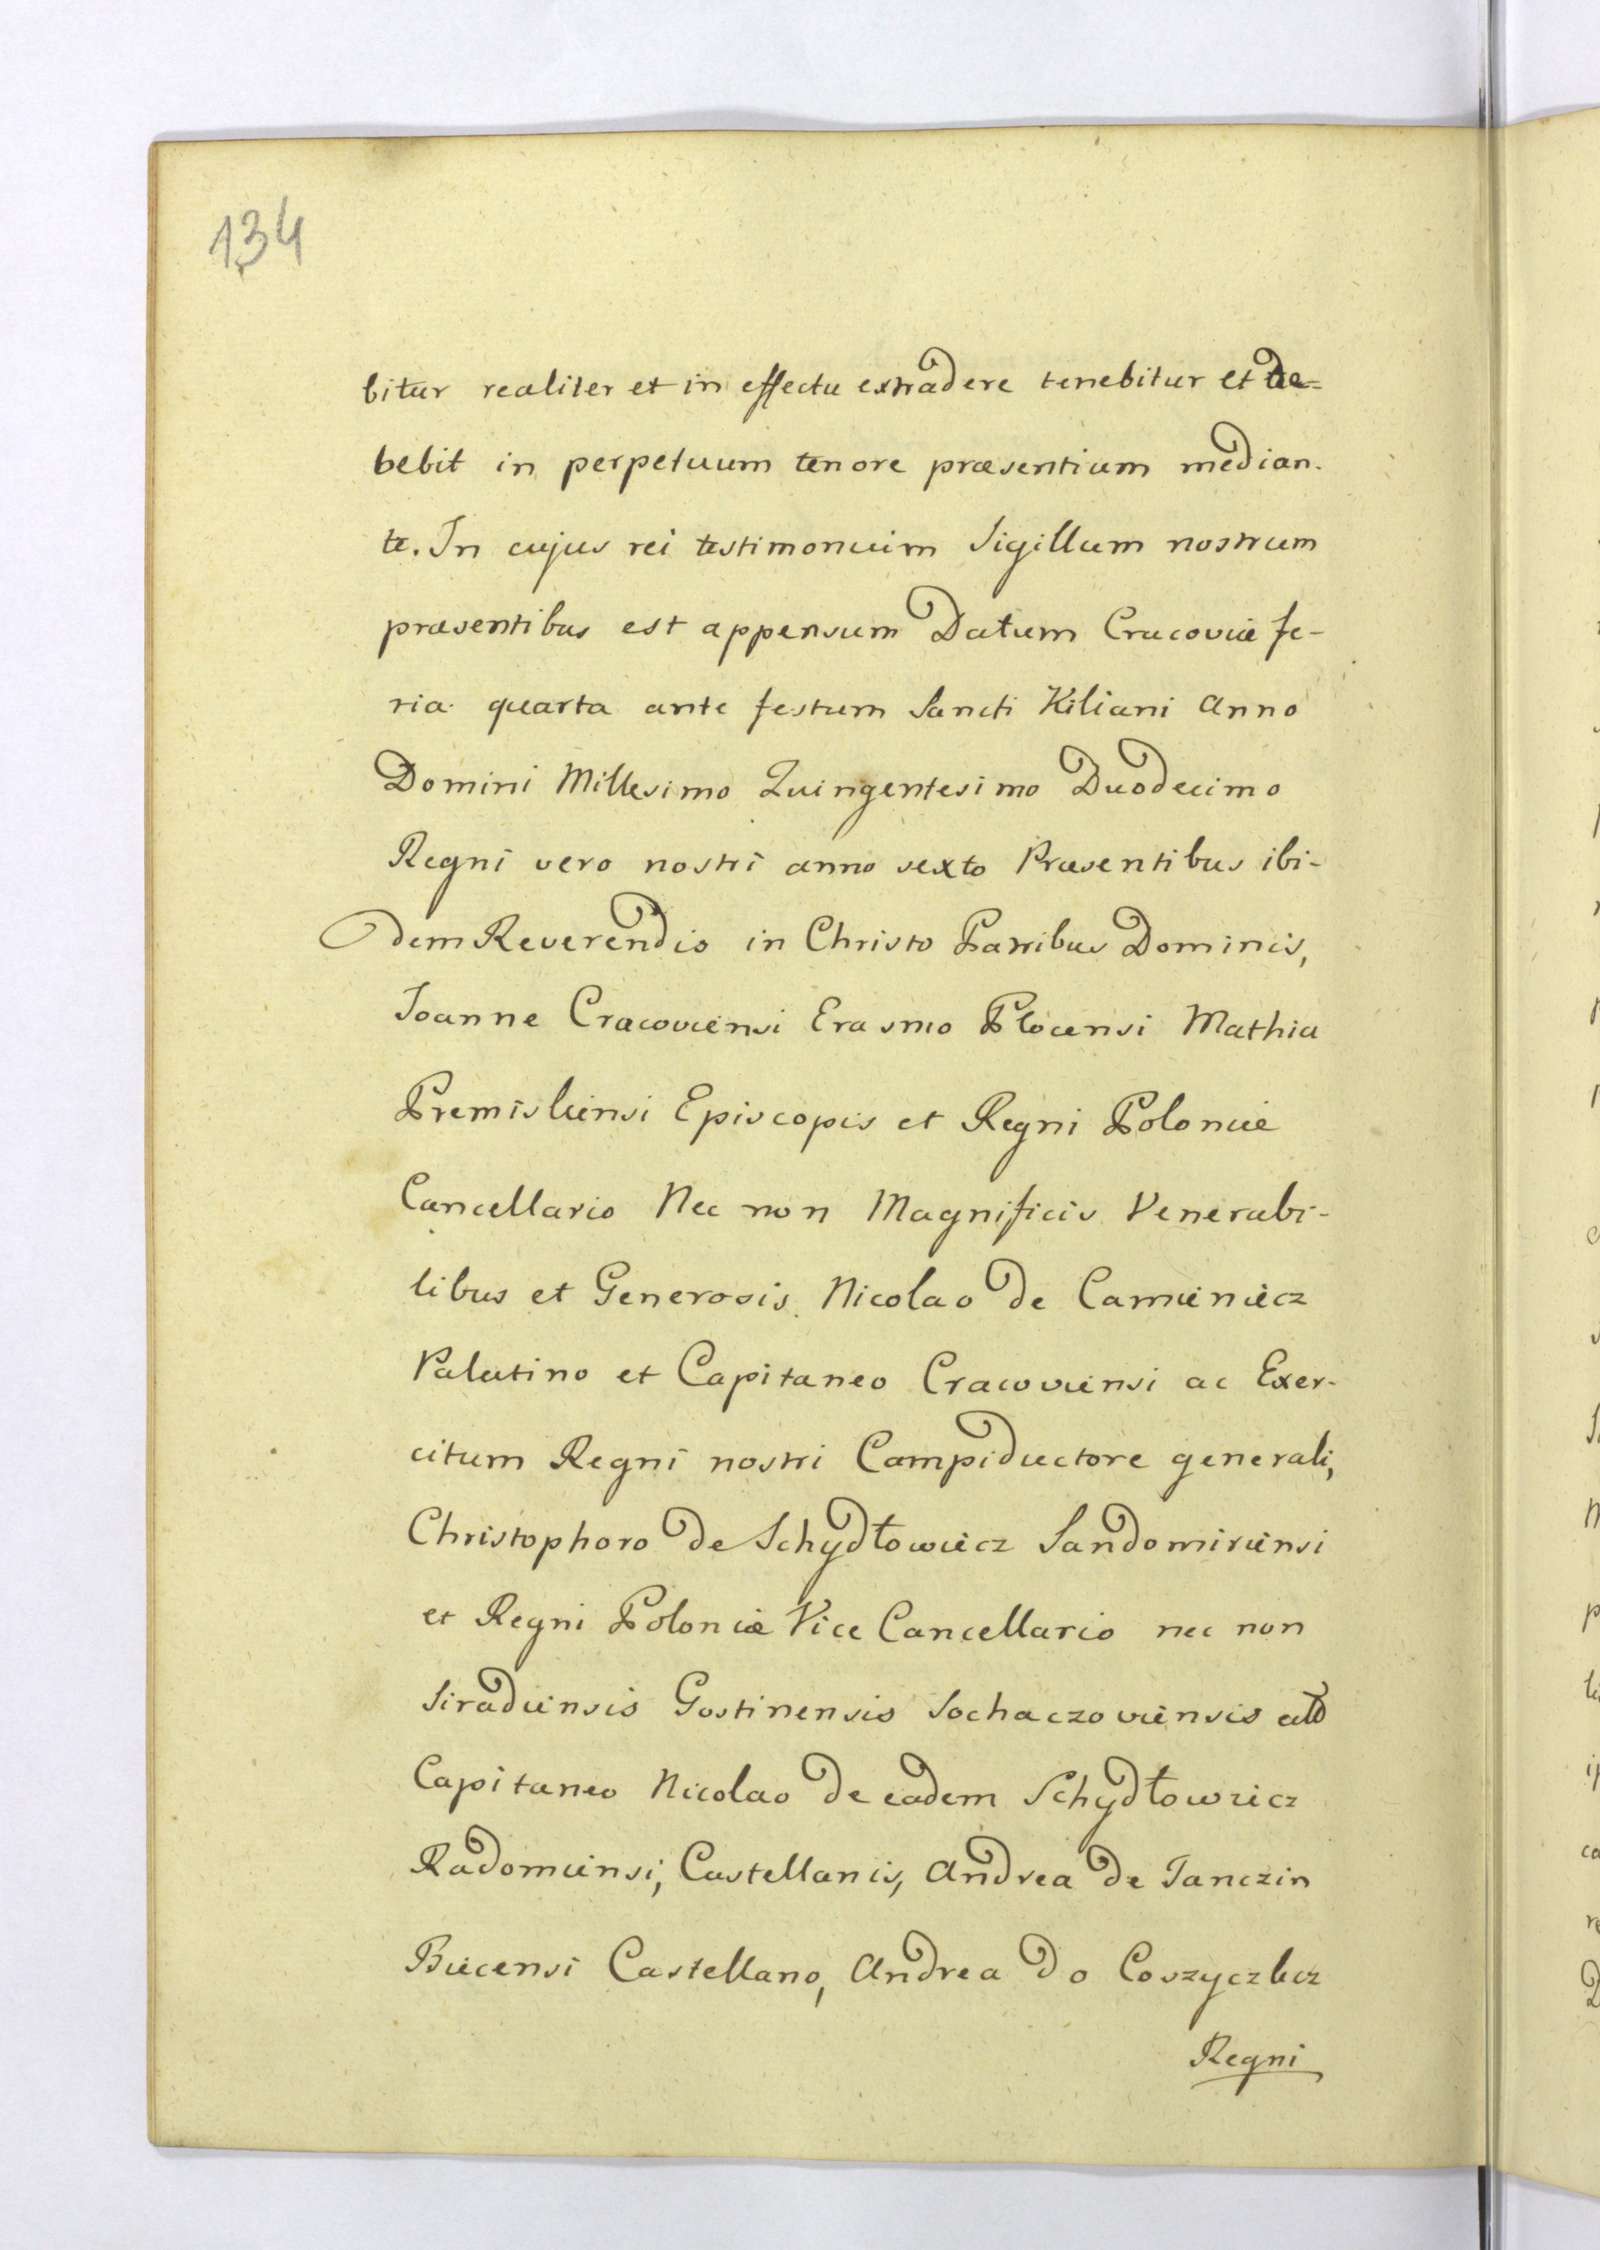 134
bitur realiter et in effectu extradere tenebitur et de=
bebit in perpetuum tenore præsentium median-
te. In cujus rei testimonium Sigillum nostrum
præsentibus est appensum Datum Cracoviæ fe-
ria quarta ante festum Sancti Kiliani Anno
Domini Millesimo Quingentesimo Duodecimo
Regni vero nostri anno sexto Præsentibus ibi-
dem Reverendis in Christo Patribus Dominis,
Joanne Cracoviensi Erasmo Plocensi Mathia
Premisliensi Episcopis et Regni Poloniæ
Cancellario Nec non Magnificis Venerabi-
libus et Generosis Nicolao de Camieniecz
Palatino et Capitaneo Cracoviensi ac Exer-
citum Regni nostri Campiductore generali,
Christophoro de Schydłowiecz Sandomiriensi
et Regni Poloniæ Vice Cancellario nec non
Siradiensis Gostinensis Sochaczoviensis
Capitaneo Nicolao de eadem Schydłowiecz
Radomiensi, Castellanis, Andrea de Tanczin
Biecensi Castellano, Andrea do
Regni